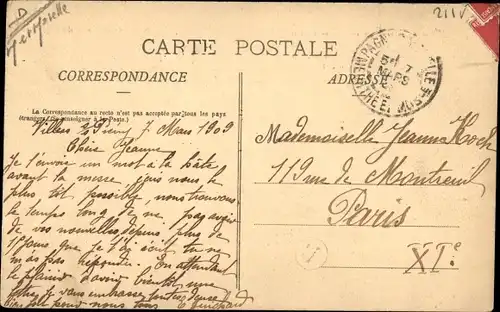 CARTE POSTALE
CORRESPONDANCE
ADRESSE
La Correspondance au recto n'est pas acceptée par tous les pays
étrangers (Se renseigner à la Poste.)
7 Mars 1909
Chère Jeanne
Je t'envoie un mot à la hâte
avant la messe,
plus tôt possible, nous trouvons
le temps long de ne pas avoir
de vos nouvelles depuis plus de
15 jours que je t'ai écrit tu ne
m'as pas répondu. En attendant
le plaisir d'avoir bientôt une
lettre je vous embrasse toutes deux
pour nous tous
Mademoiselle Jeanne Koch
119 rue de Montreuil
Paris
XIe